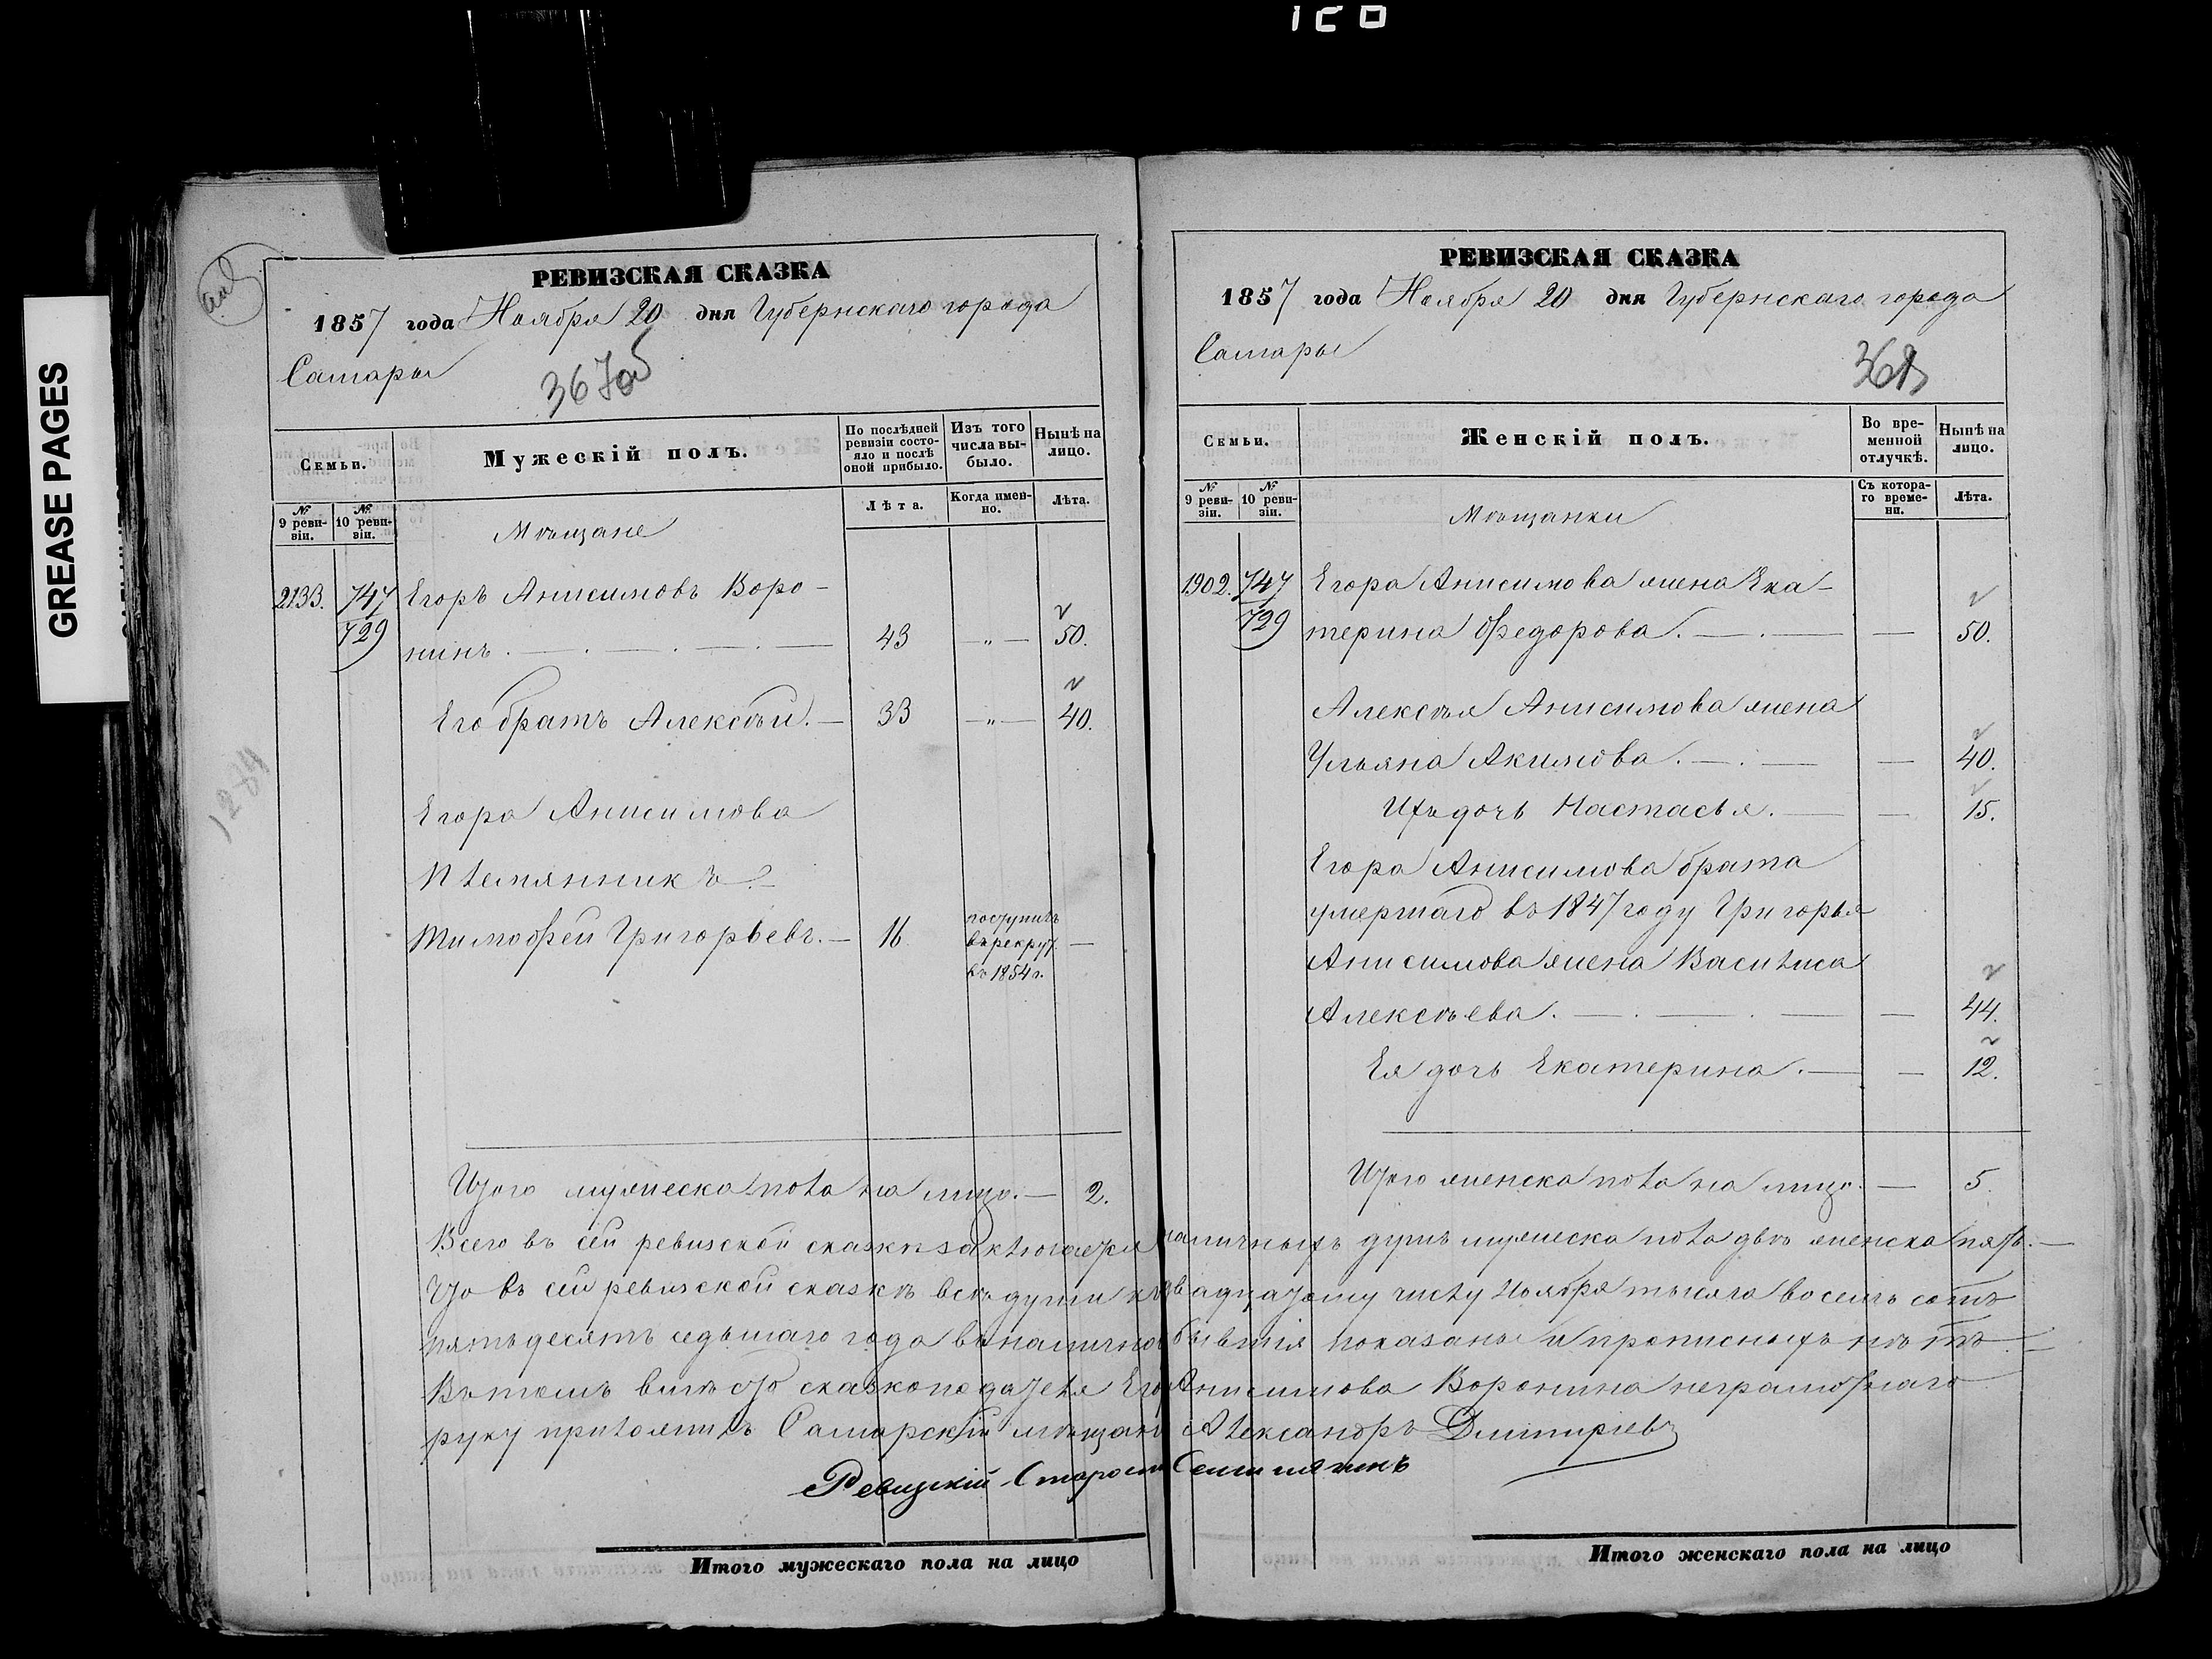 GREASE PAGES
РЕВИЗСКАЯ СКАЗКА
1857 года Ноября 20 дня Губернскаго города
Самары
367об
Семьи.
Мужескій полъ.
По послѣдней ревизіи состояло и послѣ оной прибыло.
Изъ того числа выбыло.
Нынѣ на лицо.
№ 9 ревизіи.
№ 10 ревизіи.
Лѣта.
Когда именно.
Лѣта.
Мѣщане
2133. 747 Егоръ Анисимовъ Воро-
729 нинъ. 43 — „ — 50.
Его братъ Алексѣй. — 33 — „ — 40.
1284
Егора Анисимова
племянникъ
Тимофей Григорьевъ. — 16 поступилъ
въ рекрут. —
въ 1854 г.
Итого мужеска пола на лицо. — 2.
РЕВИЗСКАЯ СКАЗКА
1857 года Ноября 20 дня Губернскаго города
Самары
368
Семьи.
Женскій полъ.
Во временной отлучкѣ.
Нынѣ на лицо.
№ 9 ревизіи.
№ 10 ревизіи.
Съ котораго времени.
Лѣта.
Мѣщанки
1902. 747 Егора Анисимова жена Ека-
729 терина Федорова. — 50.
Алексѣя Анисимова жена
Ульяна Акимова. — 40.
Ихъ дочь Настасья. — 15.
Егора Анисимова брата
умершаго въ 1847 году Григорья
Анисимова жена Василиса
Алексѣева. — 44.
Ея дочь Екатерина. — 12.
Итого женска пола на лицо. — 5.
Всего въ сей ревизской сказкѣ заключается наличныхъ душъ мужеска пола двѣ женска пять. —
Что въ сей ревизской сказкѣ всѣ души къ двадцатому числу Ноября тысяча восемь сотъ
пятьдесятъ седьмаго года въ наличности бывшія показаны и прописныхъ нѣтъ
Въ томъ вмѣсто сказкоподателя Егора Анисимова Воронина неграмотнаго
руку приложилъ Самарскій мѣщанинъ Александръ Дмитріевъ
Ревизскій Староста
Итого мужескаго пола на лицо
Итого женскаго пола на лицо